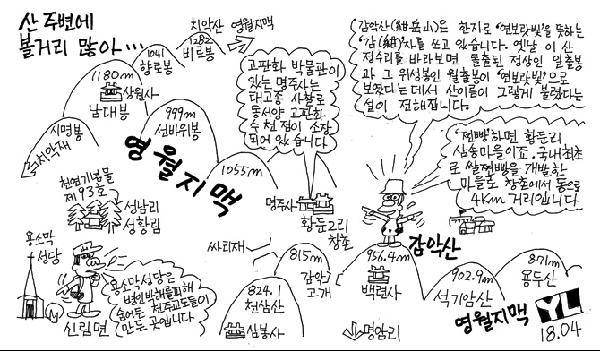 산 주변에
볼거리 많아...
치악산
영월지맥
1282
비로봉
1041
향로봉
1180m
상원사
남대봉
999m
선바위봉
시명봉
영월지맥
1055m
고판화 박물관이
있는 명주사는
태고종 사찰로
동서양 고판화
수천점이 소장
되어 있습니다
감악산(紺岳山)은 한자로 "연보랏빛"을 뜻하는
"감(紺)"자를 쓰고 있습니다. 옛날 이 산
정수리를 바라보면 돌출된 정상인 일출봉
과 그 위성봉인 월출봉이 "연보랏빛"으로
보였다는데서 산이름이 그렇게 불렸다는
설이 전해집니다.
"찐빵"하면 황둔리
삼송마을이죠. 국내최초
로 쌀찐빵을 개발한
마을도 창촌에서 동으로
4Km 거리입니다
천연기념물
제93호
성남리
성황림
명주사
황둔2리
창촌
감악산
용소막
성당
N
신림면
용소막성당은
병인박해를 피해
숨어든 천주교도들이
만든 곳입니다
싸리재
824.1
천삼산
심봉사
815m
감악
고개
956.4m
백련사
명암리
902.9m
석기암산
871m
용두산
영월지맥
YL
18.04